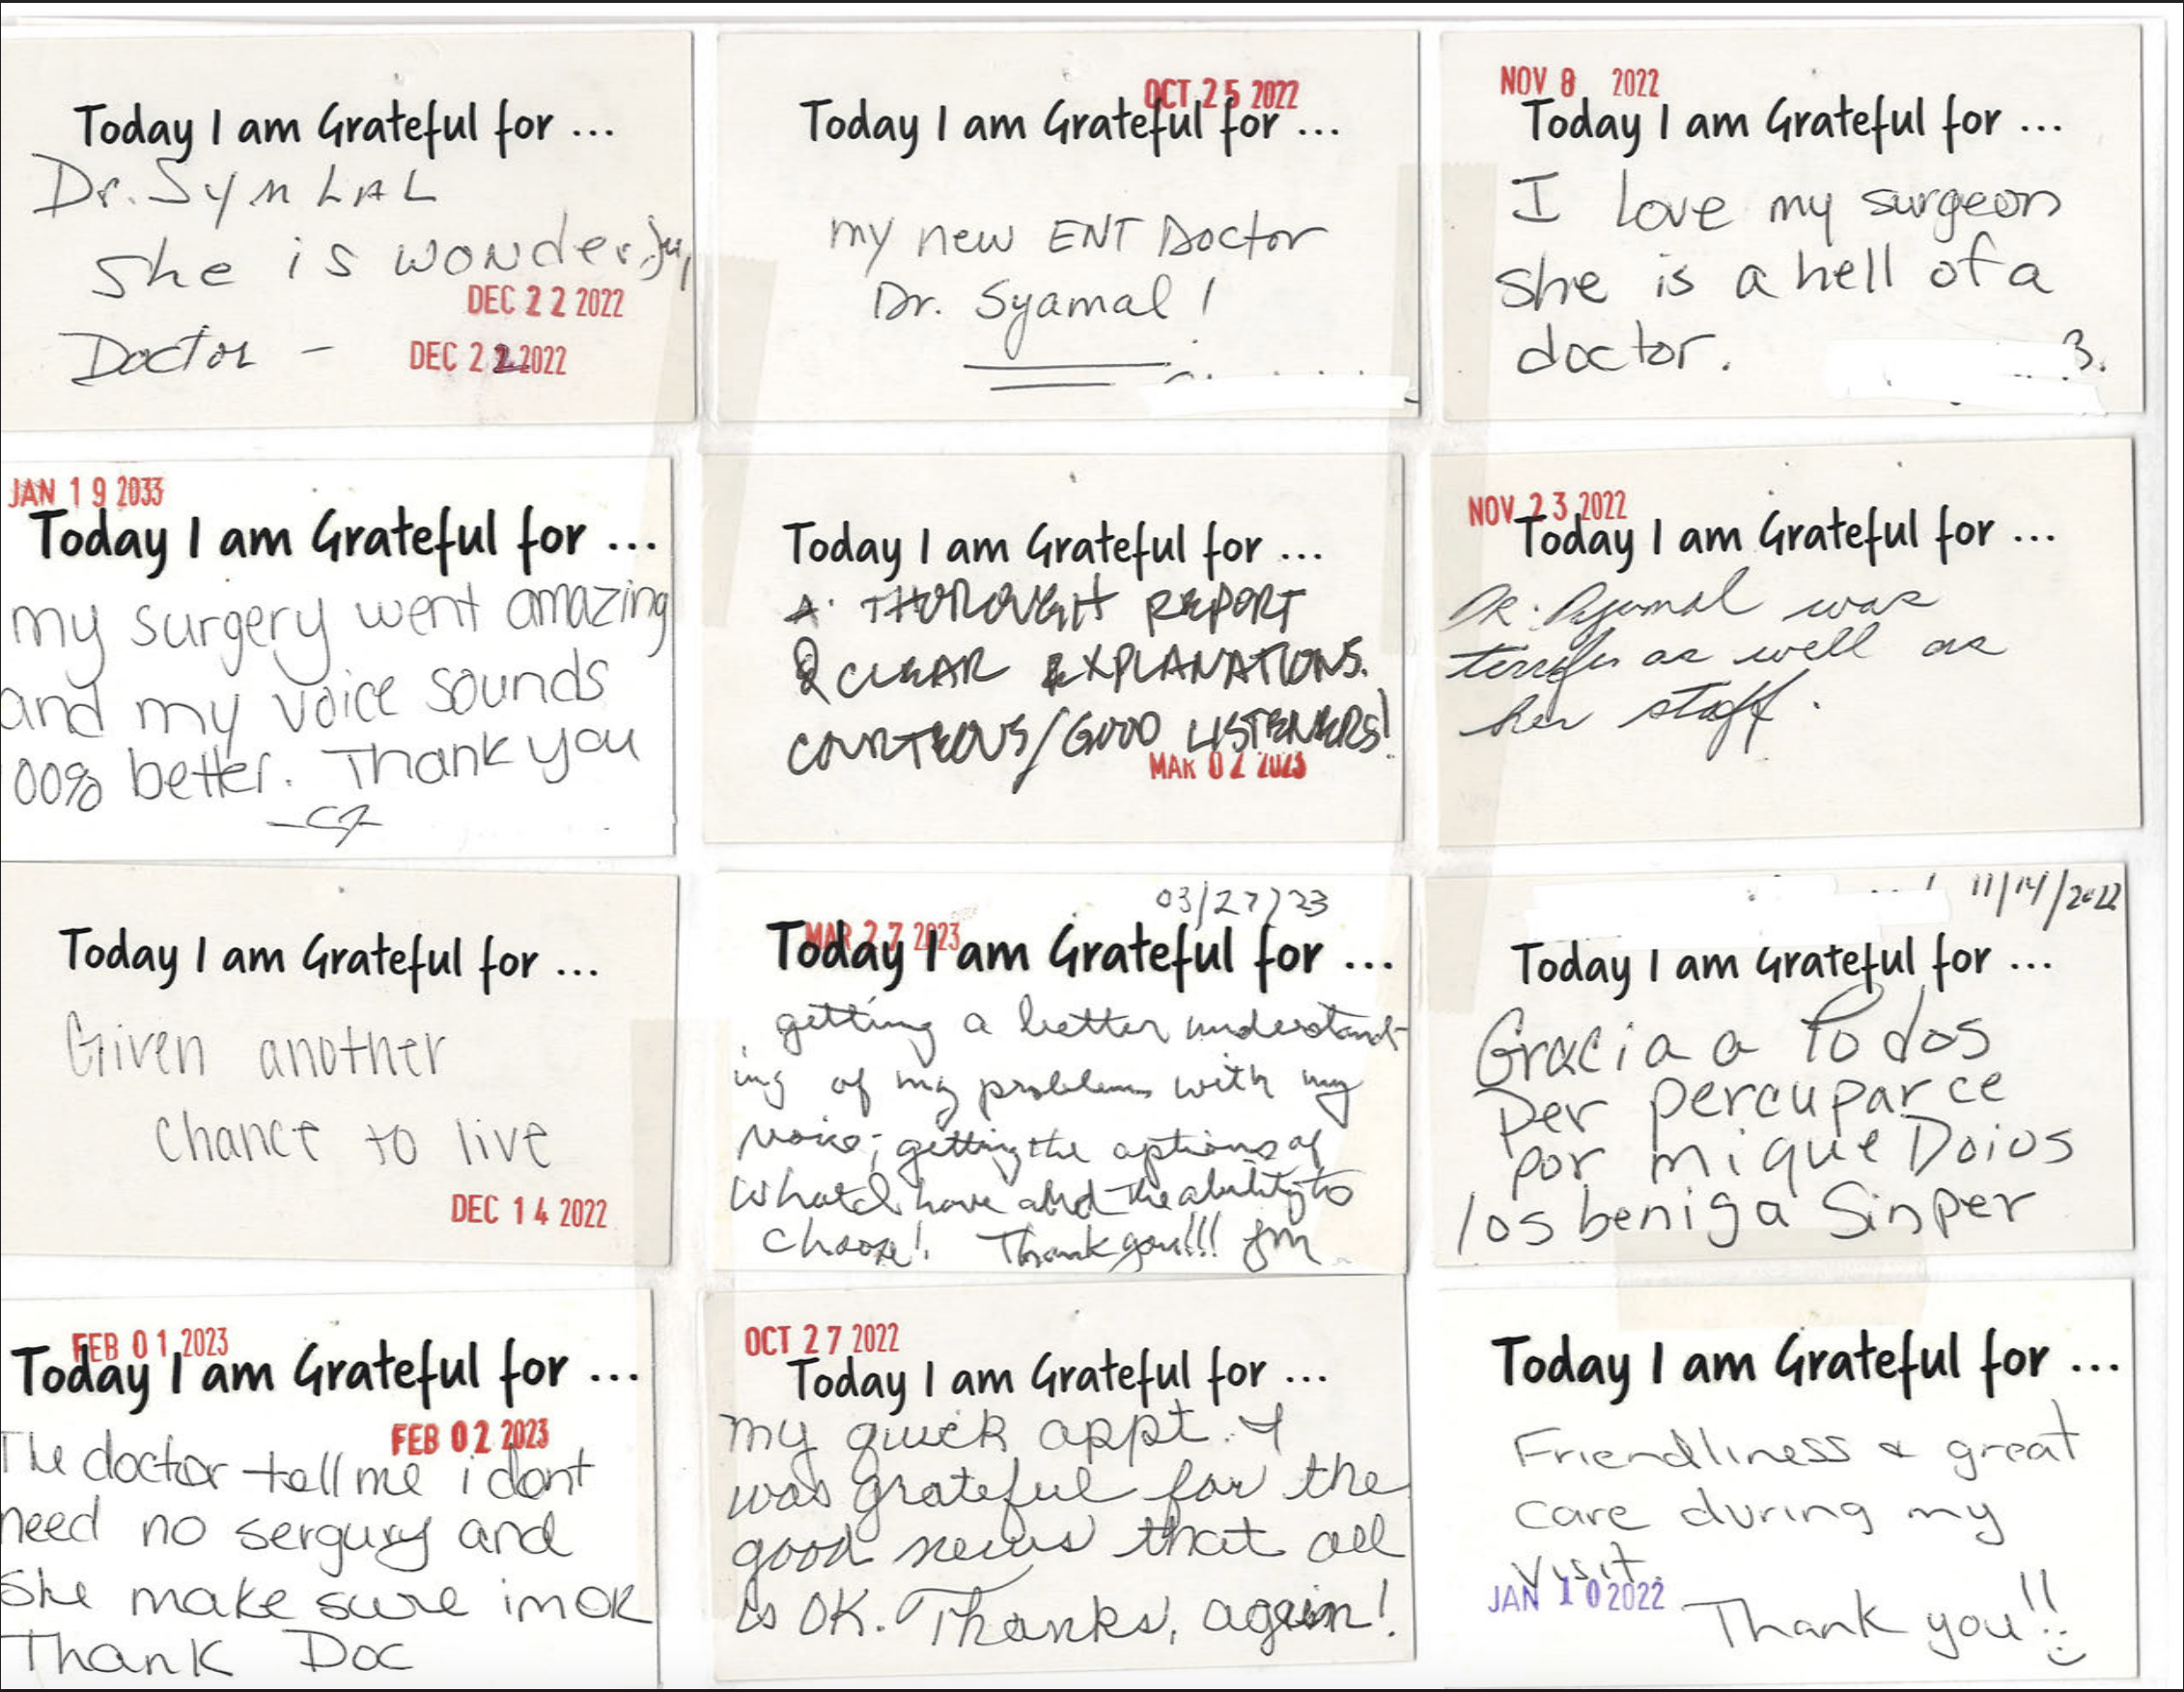 Today I am Grateful for ...
Dr. Symlal
She is wonderful
DEC 22 2022
Doctor -
DEC 22 2022
OCT 25 2022
Today I am Grateful for ...
my new ENT Doctor
Dr. Syamal!
NOV 8 2022
Today I am Grateful for ...
I love my surgeon
she is a hell of a
doctor.
JAN 19 2033
Today I am Grateful for ...
my surgery went amazing
and my voice sounds
00% better. Thank you
Today I am Grateful for ...
A THOROUGH REPORT
& CLEAR EXPLANATIONS.
COURTEOUS/GOOD LISTENERS!
MAR 02 2023
NOV 23 2022
Today I am Grateful for ...
Dr. Syamal was
terrific as well as
her staff.
Today I am Grateful for ...
Given another
chance to live
DEC 14 2022
03/27/23
MAR 27 2023
Today I am Grateful for ...
getting a better understand-
ing of my problems with my
voice; getting the options of
what I have and the ability to
choose! Thank you!!! Jm
11/14/2022
Today I am Grateful for ...
Gracia a Todos
per percuparce
por mi que Doios
los beniga Sinper
FEB 01 2023
Today I am Grateful for ...
FEB 02 2023
The doctor tell me i dont
need no sergury and
She make sure im OK
Thank Doc
OCT 27 2022
Today I am Grateful for ...
my quick appt. I
was grateful for the
good news that all
is OK. Thanks, again!
Today I am Grateful for ...
Friendliness & great
care during my
visit.
JAN 10 2022
Thank you!!